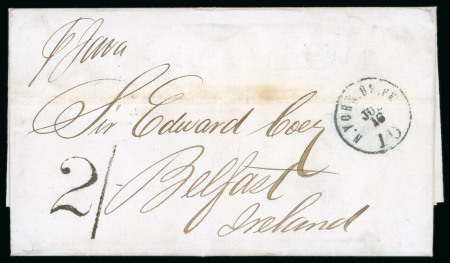 p Java
Sir Edward Coey
Belfast
Ireland
2/
N. YORK BR. PK
JUL
16
16